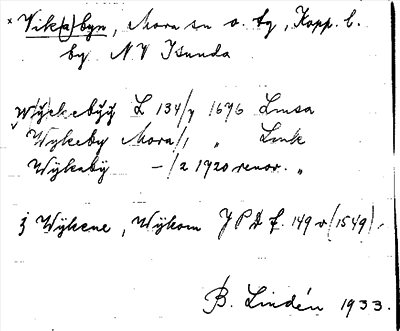 × Vik(a)byn, Mora sn o. tg, Kopp. l.
by NV Isunda
Wÿckebÿÿ L 134/7 1696 Lmsa
Wykeby Mora/1 " Lmk
Wÿkabÿ —/2 1920 renov. "
ʒ Wÿkene, Wÿkom JPD f. 149 v (1549).
B. Lindén 1933.